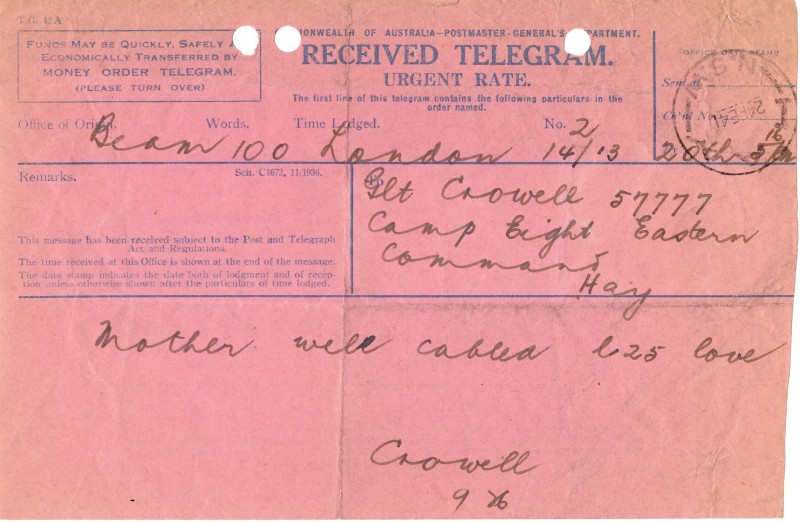 T.G. 42A
COMMONWEALTH OF AUSTRALIA—POSTMASTER-GENERAL'S DEPARTMENT.
RECEIVED TELEGRAM.
URGENT RATE.
The first line of this telegram contains the following particulars in the
order named.
FUNDS MAY BE QUICKLY, SAFELY A
ECONOMICALLY TRANSFERRED BY
MONEY ORDER TELEGRAM.
(PLEASE TURN OVER)
(OFFICE DATE STAMP)
Sent at
Ch'd No.
Office of Origin. Words. Time Lodged. No. 2
Beam 100 London 14/13 20th
Remarks. Sch. C1672, 11/1936.
This message has been received subject to the Post and Telegraph
Act and Regulations.
The time received at this Office is shown at the end of the message.
The date stamp indicates the date both of lodgment and of recep-
tion unless otherwise shown after the particulars of time lodged.
To
Crowell 57777
Camp Eight Eastern
Command
Hay
Mother well cabled L25 love
Crowell